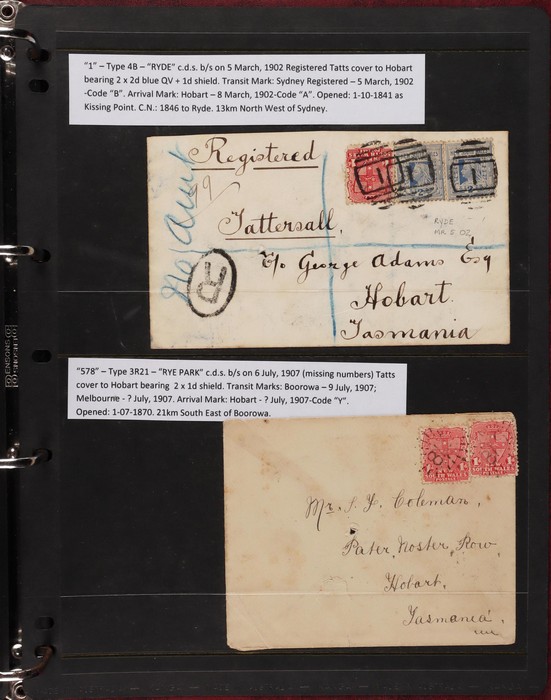 "1" – Type 4B – "RYDE" c.d.s. b/s on 5 March, 1902 Registered Tatts cover to Hobart
bearing 2 x 2d blue QV + 1d shield. Transit Mark: Sydney Registered – 5 March, 1902
-Code "B". Arrival Mark: Hobart – 8 March, 1902-Code "A". Opened: 1-10-1841 as
Kissing Point. C.N.: 1846 to Ryde. 13km North West of Sydney.
Registered
99
Tattersall,
R
RYDE
MR 5 02
C/o George Adams Esq
Hobart.
Tasmania
"578" – Type 3R21 – "RYE PARK" c.d.s. b/s on 6 July, 1907 (missing numbers) Tatts
cover to Hobart bearing 2 x 1d shield. Transit Marks: Boorowa – 9 July, 1907;
Melbourne - ? July, 1907. Arrival Mark: Hobart - ? July, 1907-Code "Y".
Opened: 1-07-1870. 21km South East of Boorowa.
SOUTH WALES
SOUTH WALES
Mr. J. F. Coleman,
Pater Noster Row,
Hobart,
Tasmania.